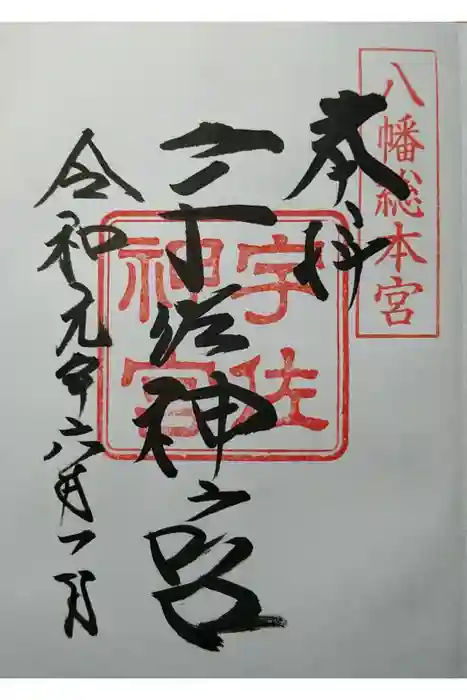 八幡総本宮
奉拝
宇佐神宮
宇佐神宮
令和元年六月一日